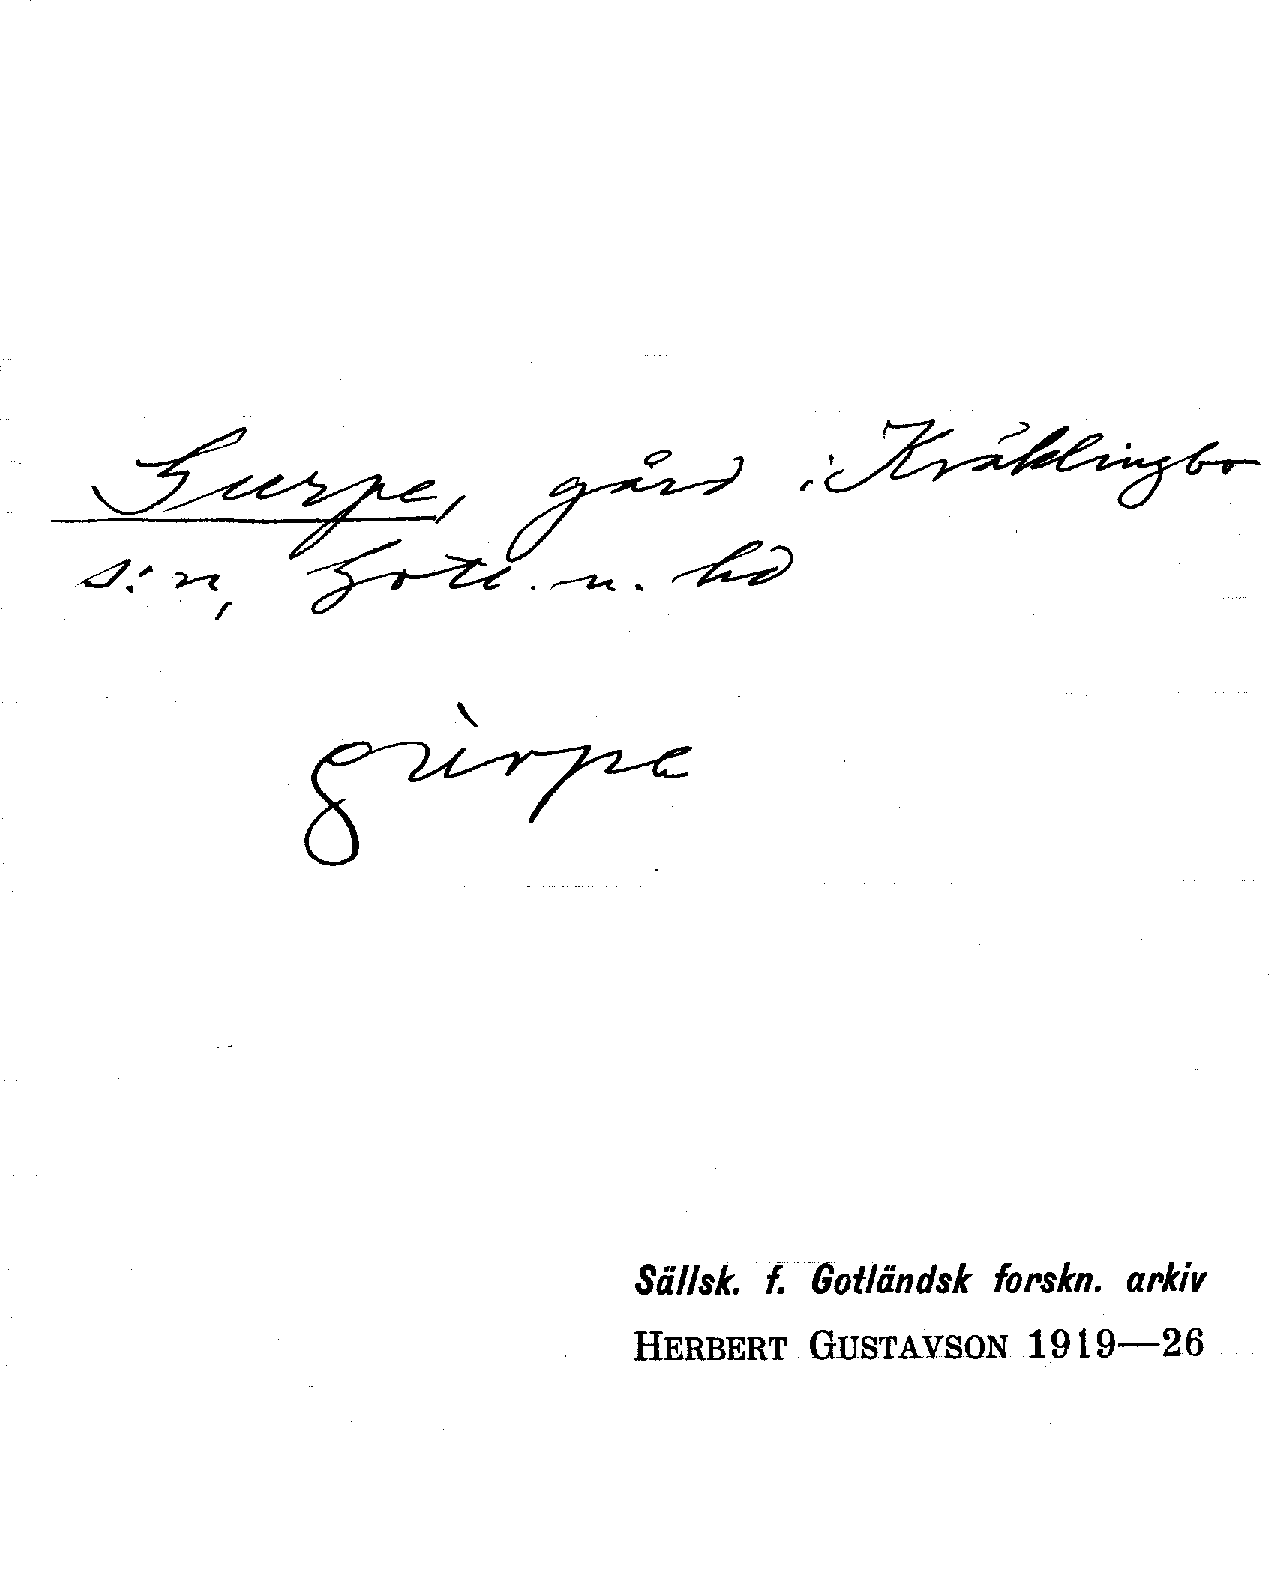 Gurpe, gård i Kräklingbo
s:n, Gotl. n. hd
gùrpe
Sällsk. f. Gotländsk forskn. arkiv
HERBERT GUSTAVSON 1919—26